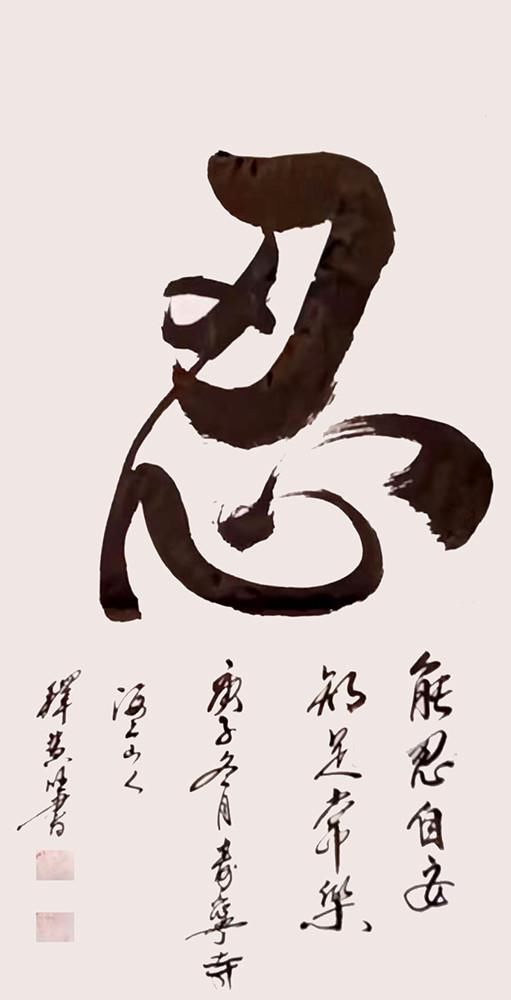 忍
能忍自安
知足常樂
庚子冬月壽寧寺
海上山人
釋慧性書